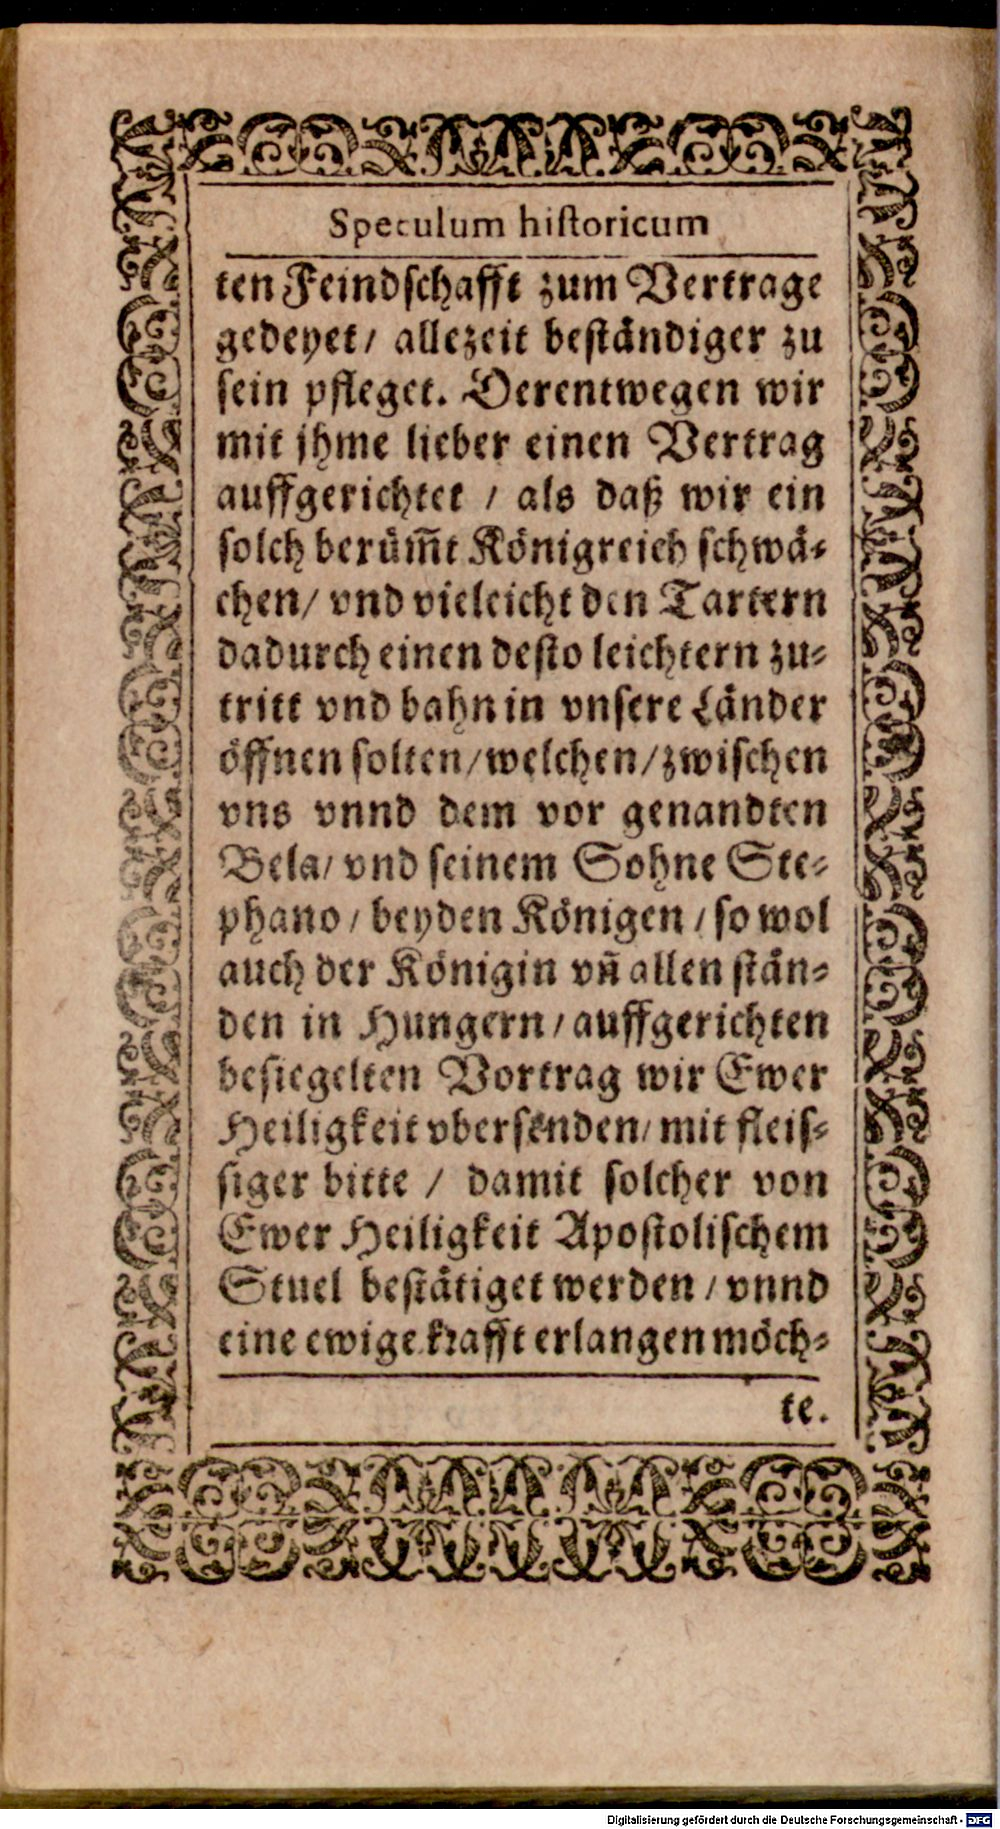 Speculum hiſtoricum
ten Feindſchafft zum Vertrage
gedeyet/ allezeit beſtändiger zu
ſein pfleget. Derentwegen wir
mit jhme lieber einen Vertrag
auffgerichtet / als daß wir ein
ſolch berüm̄t Königreich ſchwä⸗
chen/ vnd vieleicht den Tartern
dadurch einen deſto leichtern zu⸗
tritt vnd bahn in vnſere Länder
öffnen ſolten/welchen/zwiſchen
vns vnnd dem vor genandten
Bela/ vnd ſeinem Sohne Ste⸗
phano/ beyden Königen/ ſo wol
auch der Königin vn̄ allen ſtän⸗
den in Hungern/auffgerichten
beſiegelten Vortrag wir Ewer
Heiligkeit vberſenden/ mit fleiſ⸗
ſiger bitte / damit ſolcher von
Ewer Heiligkeit Apoſtoliſchem
Stuel beſtätiget werden/ vnnd
eine ewige krafft erlangen möch⸗
te.
Digitalisierung gefördert durch die Deutsche Forschungsgemeinschaft - DFG